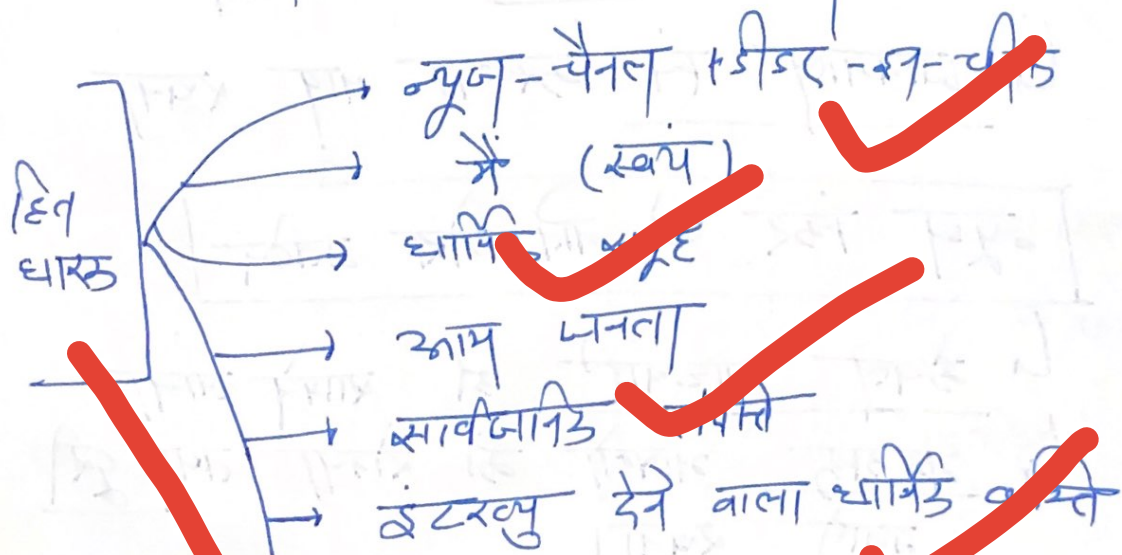 न्यूज-चैनल + एडीटर-इन-चीफ
हित
धारक
मैं (स्वयं)
धार्मिक समूह
आम जनता
सार्वजानिक संपत्ति
इंटरव्यु देने वाला धार्मिक व्यक्ति